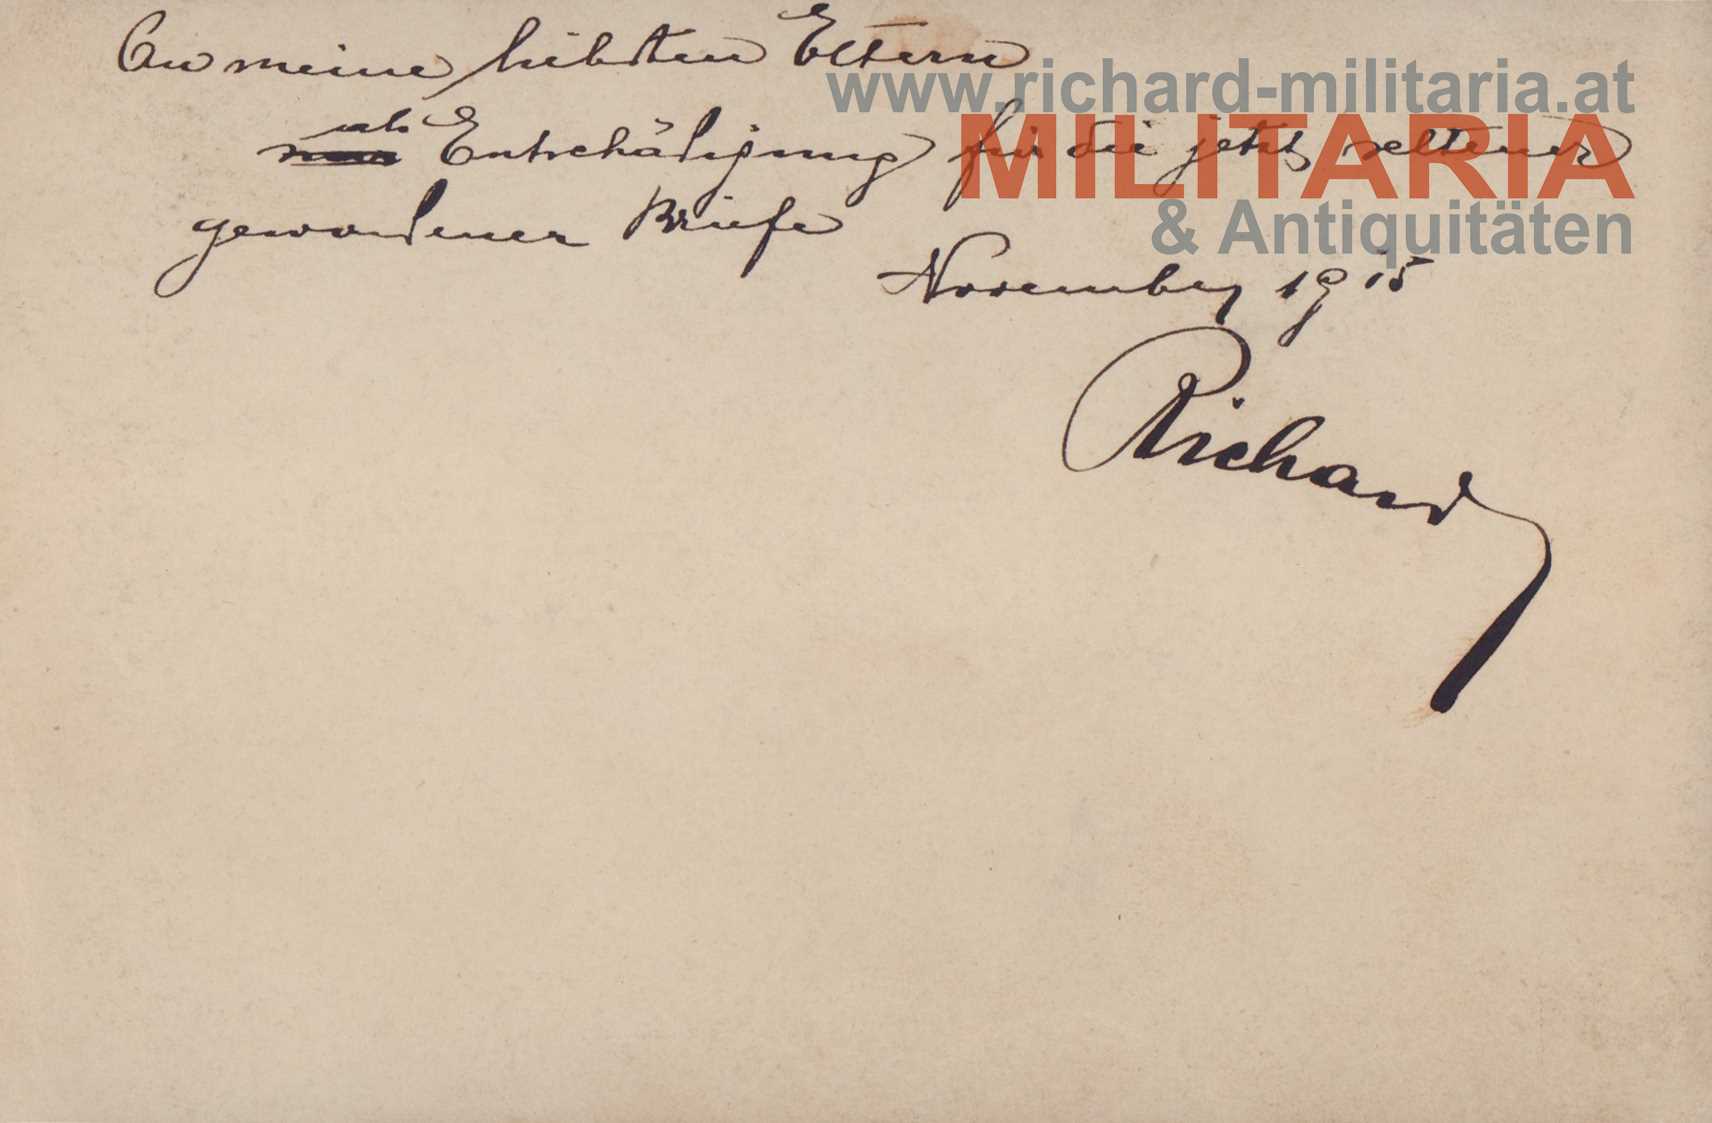 An meine liebsten Eltern
www.richard-militaria.at
MILITARIA
& Antiquitäten
als
Entschädigung für die jetzt seltener
gewordenen Briefe
November 1915
Richard